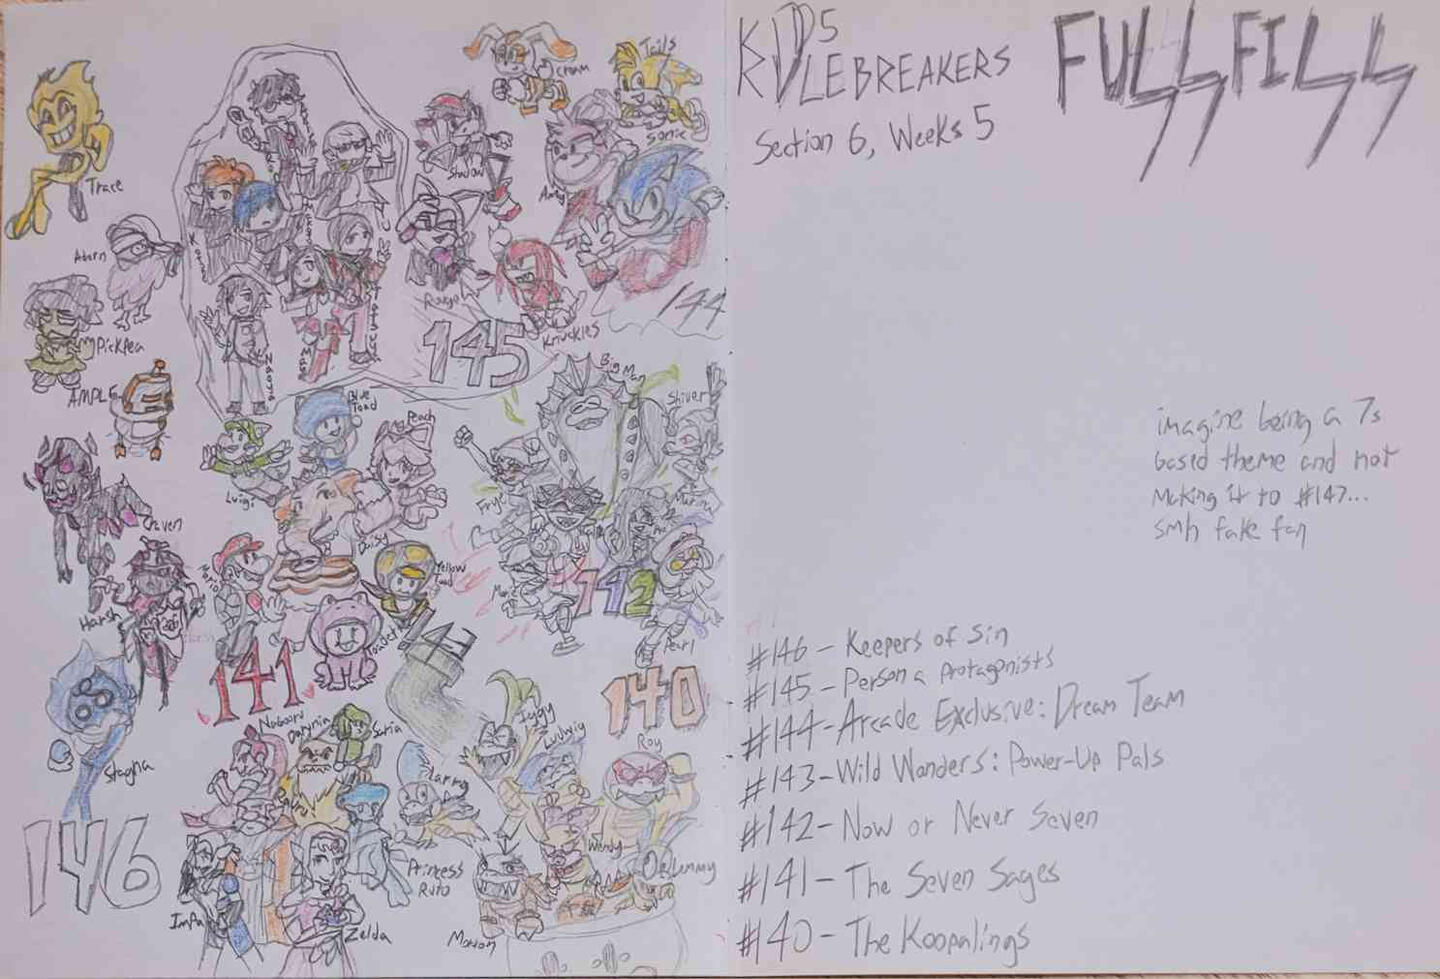 KIDS
RULEBREAKERS
Section 6, Weeks 5
FULLFILL
Tails
Cream
Sonic
Trace
Shadow
Amy
Aburn
Rouge
144
Pickpea
Knuckles
145
Naoya
Tatsuya
AMPLE
Big Man
Shiver
Blue
Toad
Peach
Luigi
Frye
Marina
Craven
Daisy
Mario
Yellow
Toad
142
Harsh
Marie
Pearl
Toadette
141
143
140
Nabooru
Darunia
Saria
Iggy
Ludwig
Roy
Stagna
Rauru
Larry
Wendy
Lemmy
Princess
Ruto
Impa
Zelda
Morton
146
imagine being a 7s
based theme and not
making it to #147...
smh fake fan
#146 - Keepers of Sin
#145 - Persona Protagonists
#144 - Arcade Exclusive: Dream Team
#143 - Wild Wonders: Power-Up Pals
#142 - Now or Never Seven
#141 - The Seven Sages
#140 - The Koopalings